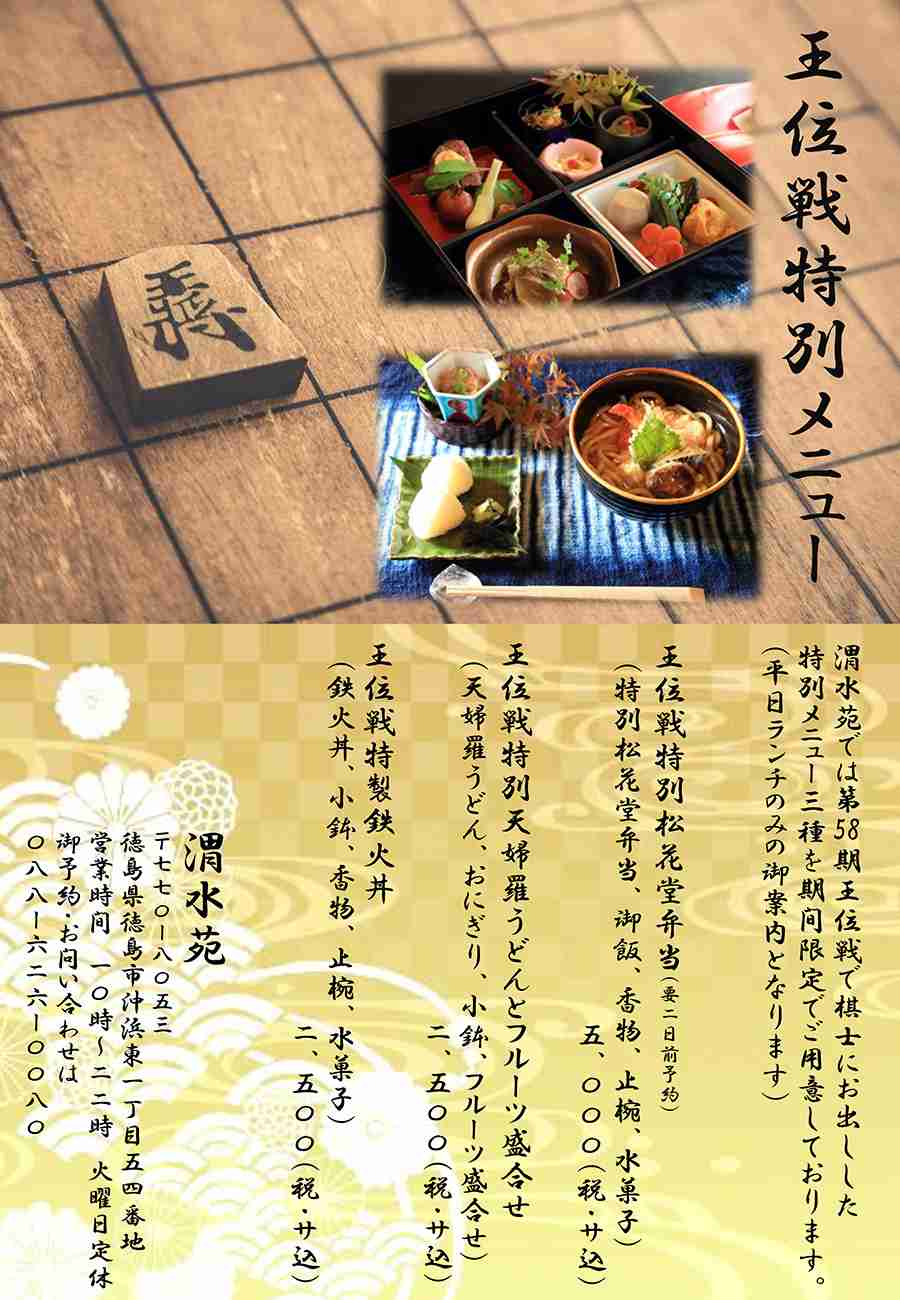 王位戦特別メニュー
王將
渭水苑では第58期王位戦で棋士にお出しした
特別メニュー三種を期間限定でご用意しております。
(平日ランチのみの御案内となります)
王位戦特別松花堂弁当(要二日前予約)
(特別松花堂弁当、御飯、香物、止椀、水菓子)
五、〇〇〇(税・サ込)
王位戦特別天婦羅うどんとフルーツ盛合せ
(天婦羅うどん、おにぎり、小鉢、フルーツ盛合せ)
二、五〇〇(税・サ込)
王位戦特製鉄火丼
(鉄火丼、小鉢、香物、止椀、水菓子)
二、五〇〇(税・サ込)
渭水苑
〒七七〇ー八〇五三
徳島県徳島市沖浜東一丁目五四番地
営業時間 一〇時~二二時 火曜日定休
御予約・お問い合わせは
〇八八ー六二六ー〇〇八〇